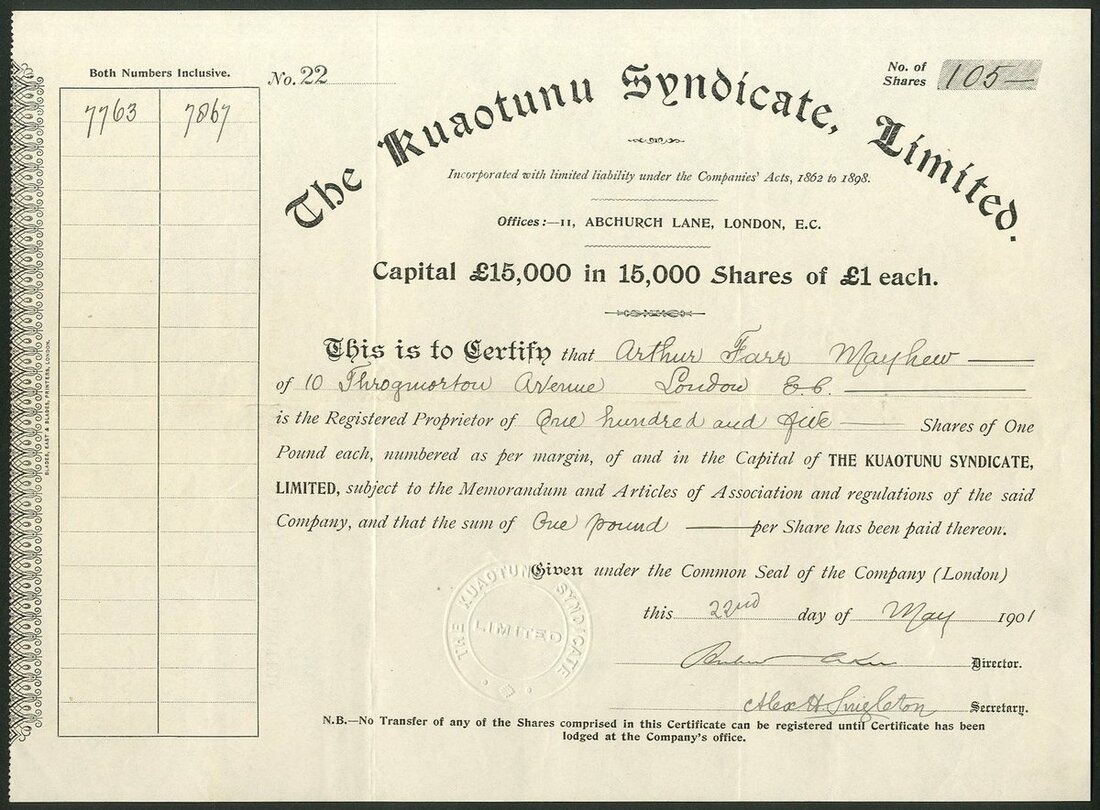 Both Numbers Inclusive.
7763 7867
No. 22
No. of Shares 105—
The Kuaotunu Syndicate, Limited.
Incorporated with limited liability under the Companies' Acts, 1862 to 1898.
Offices:—11, ABCHURCH LANE, LONDON, E.C.
Capital £15,000 in 15,000 Shares of £1 each.
This is to Certify that Arthur Farr Mayhew
of 10 Throgmorton Avenue London E.C.
is the Registered Proprietor of One hundred and five Shares of One
Pound each, numbered as per margin, of and in the Capital of THE KUAOTUNU SYNDICATE,
LIMITED, subject to the Memorandum and Articles of Association and regulations of the said
Company, and that the sum of One pound per Share has been paid thereon.
Given under the Common Seal of the Company (London)
this 22nd day of May 1901
THE KUAOTUNU SYNDICATE
LIMITED
Director.
Alex H Singleton Secretary.
N.B.—No Transfer of any of the Shares comprised in this Certificate can be registered until Certificate has been
lodged at the Company's office.
BLADES, EAST & BLADES, PRINTERS, LONDON.